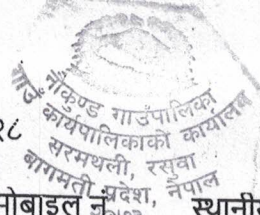 नौकुण्ड गाउँपालिका
गाउँ कार्यपालिकाको कार्यालय
सरमथली, रसुवा
बागमती प्रदेश, नेपाल
मोबाइल नं